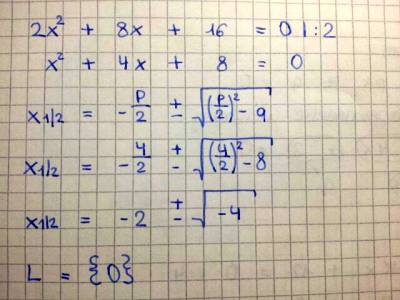 2x² + 8x + 16 = 0 | : 2
x² + 4x + 8 = 0
x1/2 = - p/2 ± √((p/2)² - q)
x1/2 = - 4/2 ± √((4/2)² - 8)
x1/2 = - 2 ± √(-4)
L = {0}